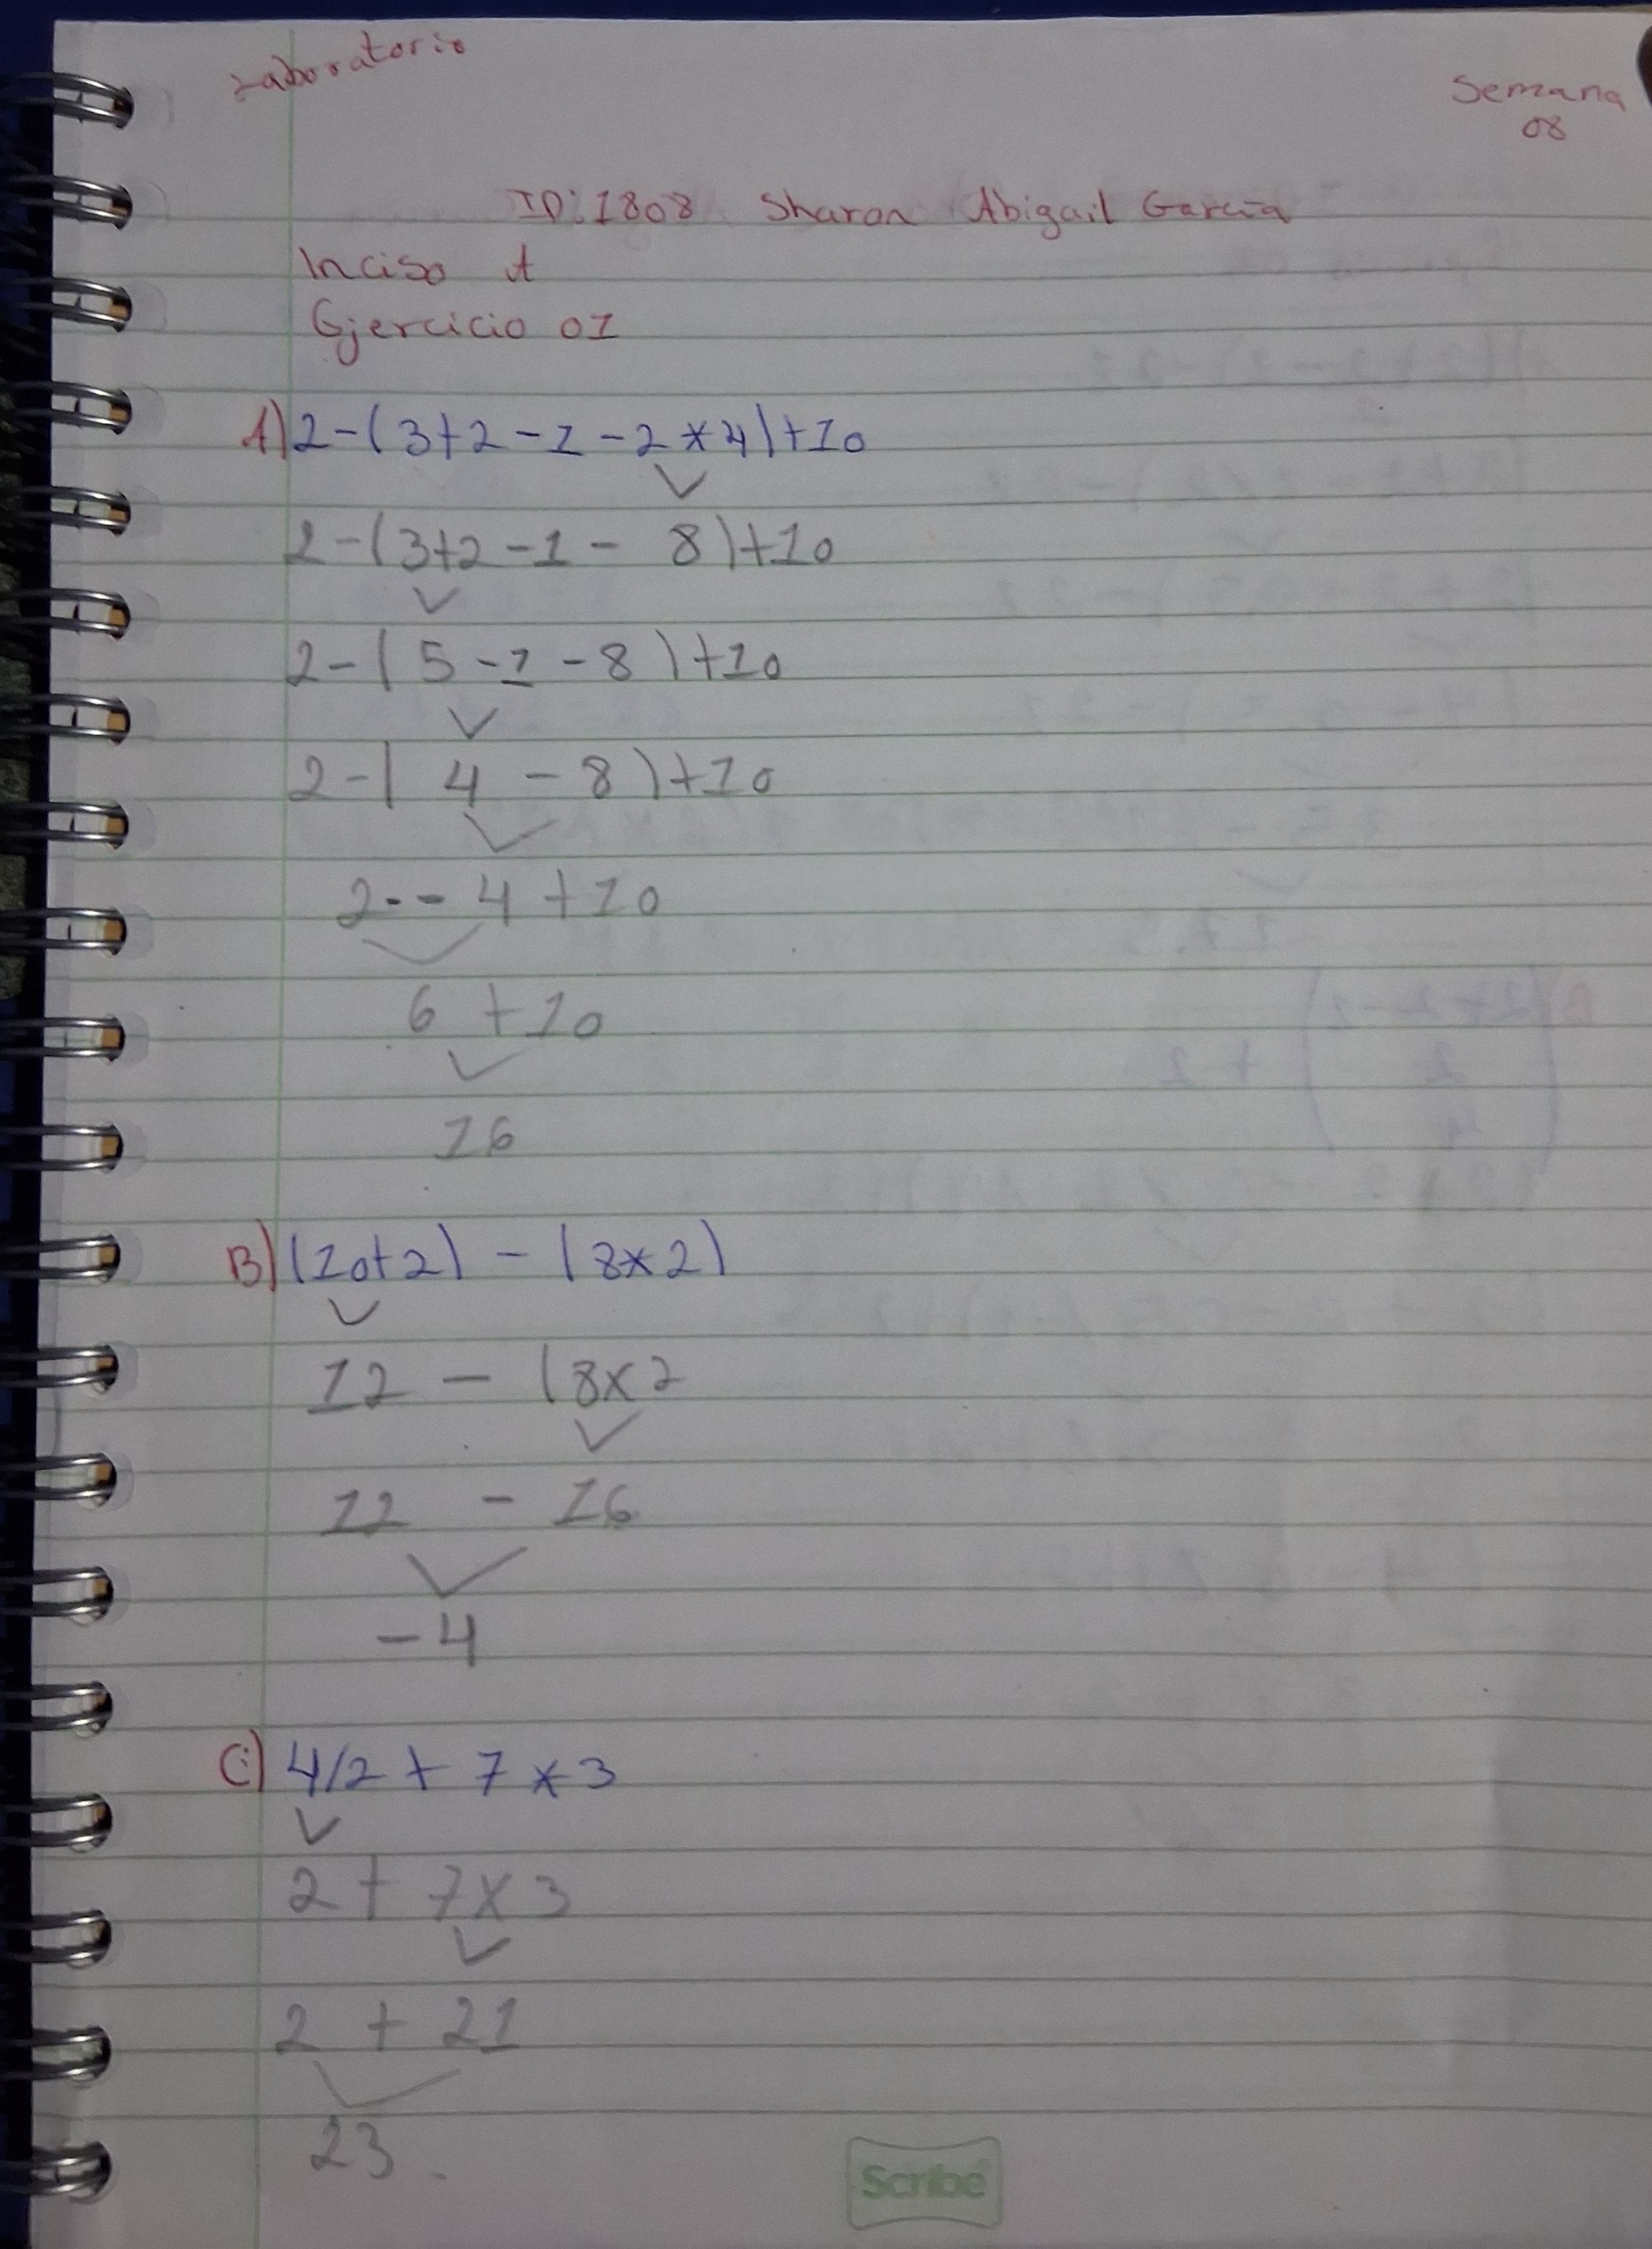 Laboratorio
Semana
08
ID:1808 Sharon Abigail Garcia
Inciso A
Ejercicio 01
A) 2-(3+2-1-2*4)+10
2-(3+2-1-8)+10
2-(5-1-8)+10
2-(4-8)+10
2--4+10
6+10
16
B) (10+2)-(8*2)
12-(8x2
12-16
-4
C) 4/2+7*3
2+7x3
2+21
23.
Scribe